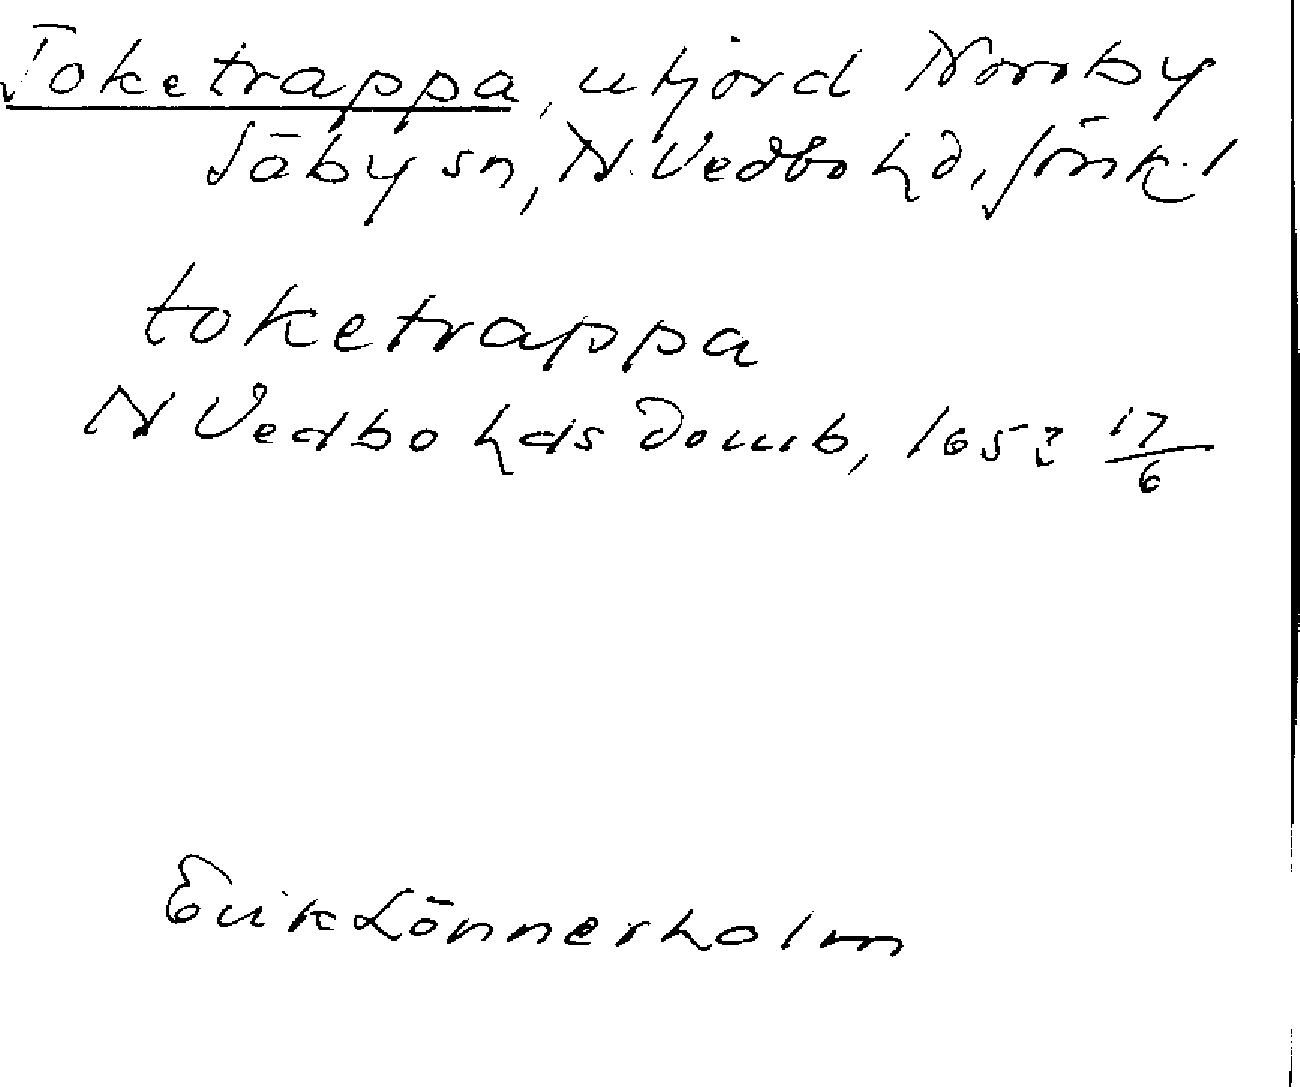 Toketrappa, utjord Norrby
Säby sn, N. Vedbo hd, Jönk. l
toketrappa
N Vedbo hds Domb, 1652 17/6
Erik Lönnerholm